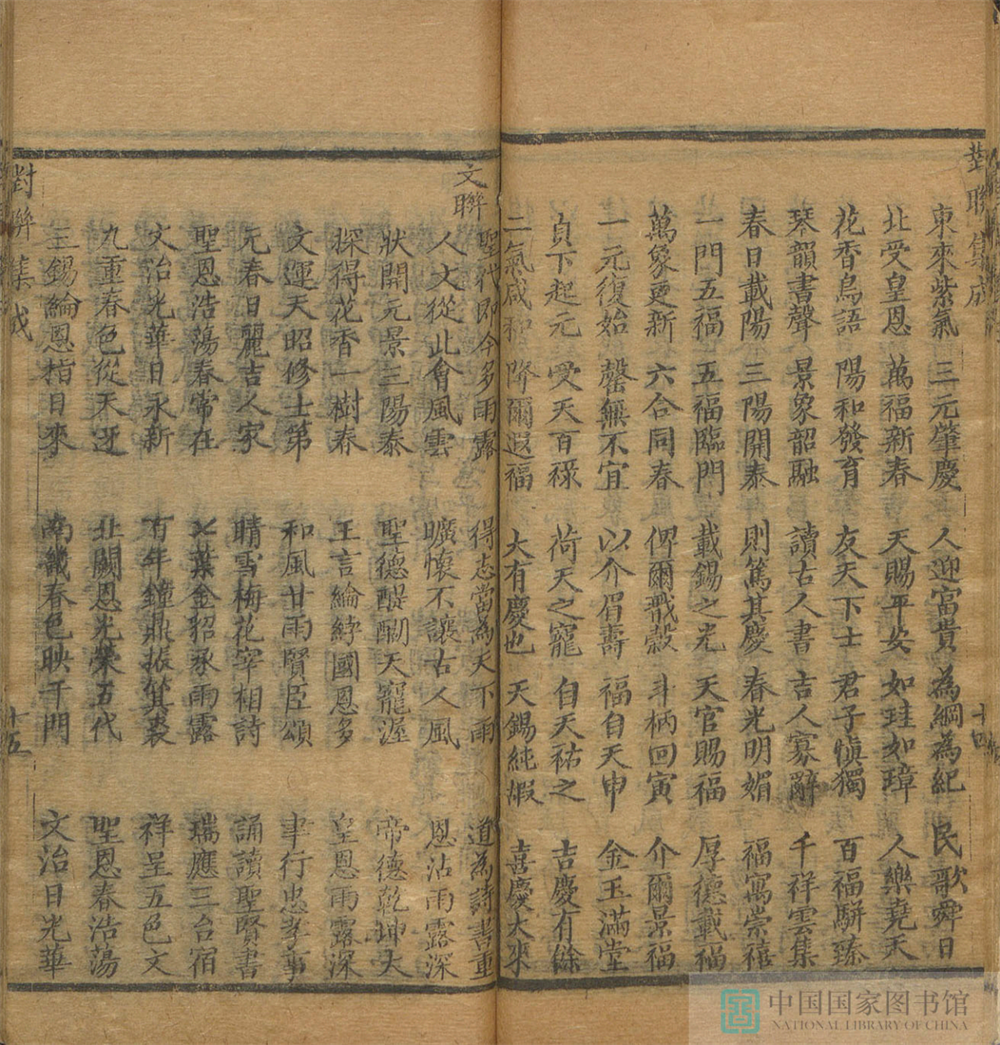 對聯集成
東來紫氣 三元肇慶 人迎富貴 為綱為紀 民歌舜日
北受皇恩 萬福新春 天賜平安 如珪如璋 人樂堯天
花香鳥語 陽和發育 友天下士 君子慎獨 百福駢臻
琴韻書聲 景象韶融 讀古人書 吉人寡辭 千祥雲集
春日載陽 三陽開泰 則篤其慶 春光明媚 福寓崇禧
一門五福 五福臨門 載錫之光 天官賜福 厚德載福
萬象更新 六合同春 俾爾戩穀 斗柄回寅 介爾景福
一元復始 罄無不宜 以介眉壽 福自天申 金玉滿堂
貞下起元 受天百祿 荷天之寵 自天祐之 吉慶有餘
二氣咸和 降爾遐福 大有慶也 天錫純嘏 喜慶大來
十四
文聯
聖代即今多雨露 得志當為天下雨 道為詩書重
人文從此會風雲 曠懷不讓古人風 恩沾雨露深
狀開元景三陽泰 聖德醍醐天寵渥 帝德乾坤大
探得花香一樹春 王言綸綍國恩多 皇恩雨露深
文運天昭修士第 和風甘雨賢臣頌 事行忠孝事
元春日麗吉人家 晴雪梅花宰相詩 誦讀聖賢書
聖恩浩蕩春常在 葉金貂承雨露 瑞應三台宿
文治光華日永新 百年鐘鼎振箕裘 祥呈五色文
九重春色從天迓 北闕恩光榮五代 聖恩春浩蕩
三錫綸恩指日來 南畿春色映千門 文治日光華
對聯集成
十五
中国国家图书馆
NATIONAL LIBRARY OF CHINA